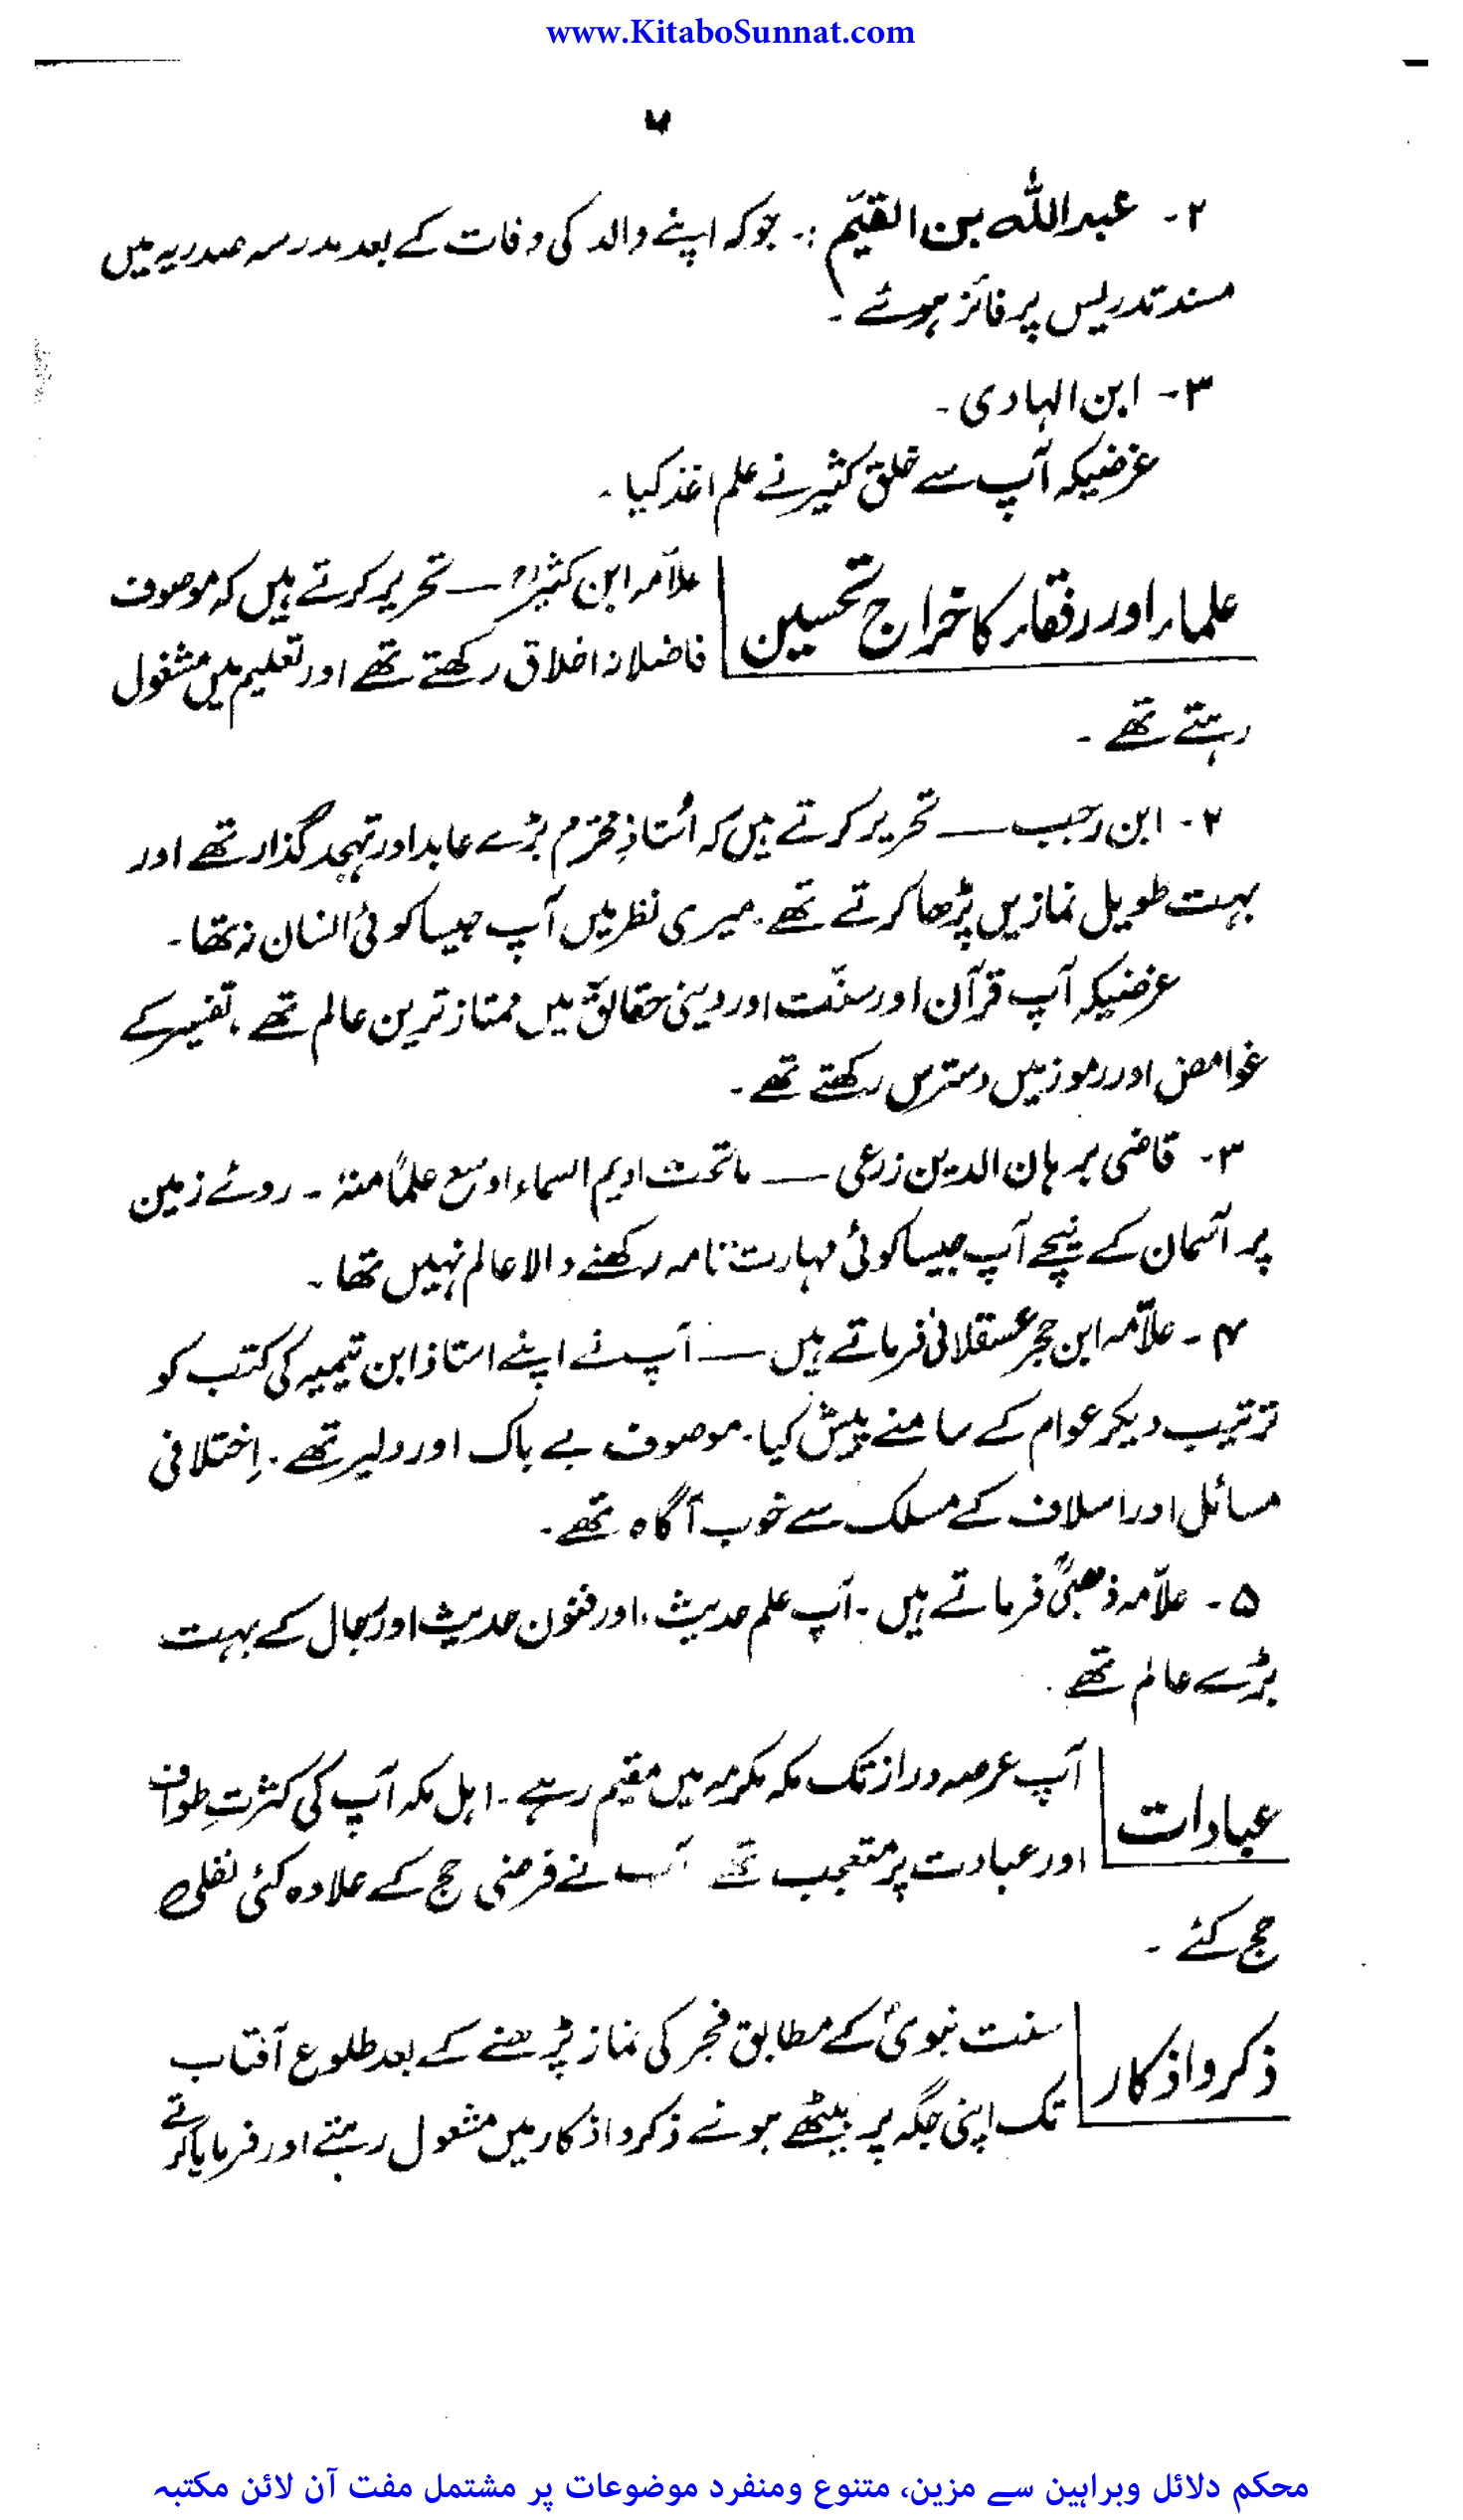 www.KitaboSunnat.com
۲۔ عبداللہ بن القیّم :۔ جو کہ اپنے والد کی وفات کے بعد مدرسہ صدریہ میں
مسند تدریس پر فائز ہوئے ۔
۳۔ ابن الہادی ۔
غرضیکہ آپ سے خلق کثیر نے علم اخذ کیا ۔
علماء اور رفقاء کا خراج تحسین
علاّمہ ابن کثیرؒ — تحریر کرتے ہیں کہ موصوف
فاضلانہ اخلاق رکھتے تھے اور تعلیم میں مشغول
رہتے تھے ۔
۲۔ ابن رجب — تحریر کرتے ہیں کہ اُستاذِ محترم بڑے عابد اور تہجد گذار تھے اور
بہت طویل نمازیں پڑھا کرتے تھے ۔ میری نظر میں آپ جیسا کوئی انسان نہ تھا ۔
غرضیکہ آپ قرآن اور سنّت اور دینی حقائق میں ممتاز ترین عالم تھے ، تفسیر کے
غوامض اور رموز میں دسترس رکھتے تھے ۔
۳۔ قاضی برہان الدین زرعی — ماتحت ادیم السماء اوسع علماً منہٗ ۔ روئے زمین
پر آسمان کے نیچے آپ جیسا کوئی مہارت تامہ رکھنے والا عالم نہیں تھا ۔
۴۔ علاّمہ ابن حجر عسقلانی فرماتے ہیں — آپ نے اپنے استاذ ابن تیمیہ کی کتب کو
ترتیب دیکر عوام کے سامنے پیش کیا ۔ موصوف بے باک اور دلیر تھے ۔ اِختلافی
مسائل اور اسلاف کے مسلک سے خوب آگاہ تھے ۔
۵۔ علاّمہ ذھبیؒ فرماتے ہیں ۔ آپ علم حدیث ، اور فنون حدیث اور رجال کے بہت
بڑے عالم تھے ۔
عبادات
آپ عرصہ دراز تک مکہ مکرمہ میں مقیم رہے ۔ اہل مکہ آپ کی کثرتِ طواف
اور عبادت پر متعجب تھے آپ نے فرضی حج کے علاوہ کئی نفلی
حج کئے ۔
ذکر و اذکار
سنت نبویؐ کے مطابق فجر کی نماز پڑھنے کے بعد طلوع آفتاب
تک اپنی جگہ پر بیٹھے ہوئے ذکر و اذکار میں مشغول رہتے اور فرمایا کرتے
محکم دلائل وبراہین سے مزین، متنوع ومنفرد موضوعات پر مشتمل مفت آن لائن مکتبہ